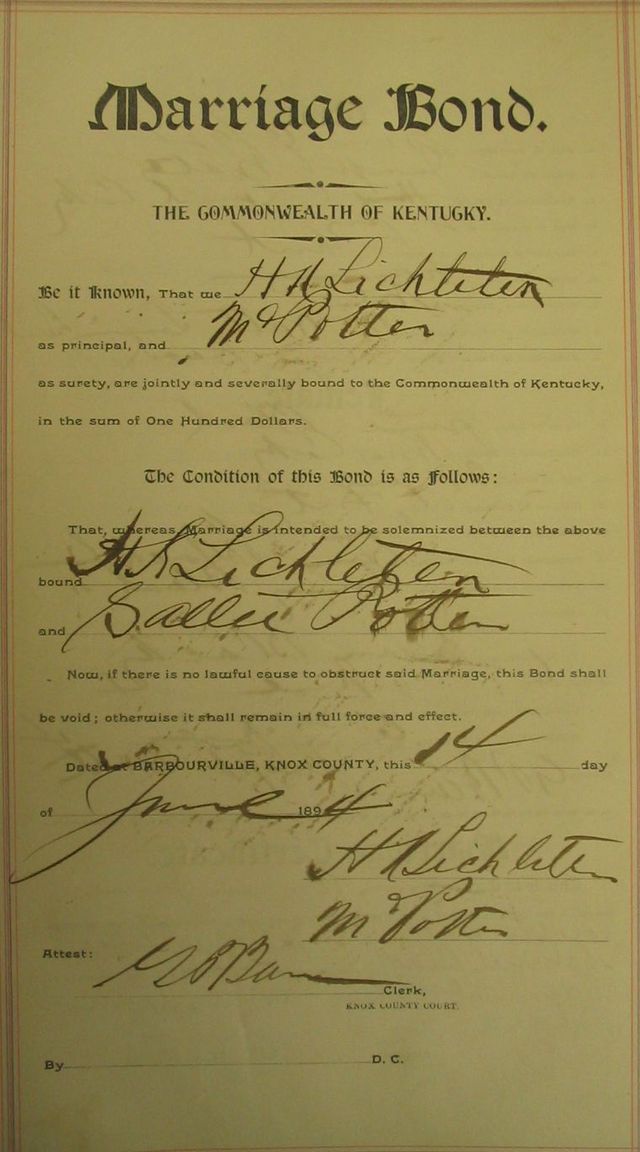 Marriage Bond.
THE COMMONWEALTH OF KENTUCKY.
Be it Known, That we H A Lichliten
as principal, and M D Potter
as surety, are jointly and severally bound to the Commonwealth of Kentucky,
in the sum of One Hundred Dollars.
The Condition of this Bond is as Follows:
That, whereas Marriage is intended to be solemnized between the above
bound H A Lichliten
and Sallie Potter
Now, if there is no lawful cause to obstruct said Marriage, this Bond shall
be void; otherwise it shall remain in full force and effect.
Dated at BARBOURVILLE, KNOX COUNTY, this 14 day
of June 1894
H A Lichliten
M D Potter
Attest:
Clerk,
KNOX COUNTY COURT.
By D. C.